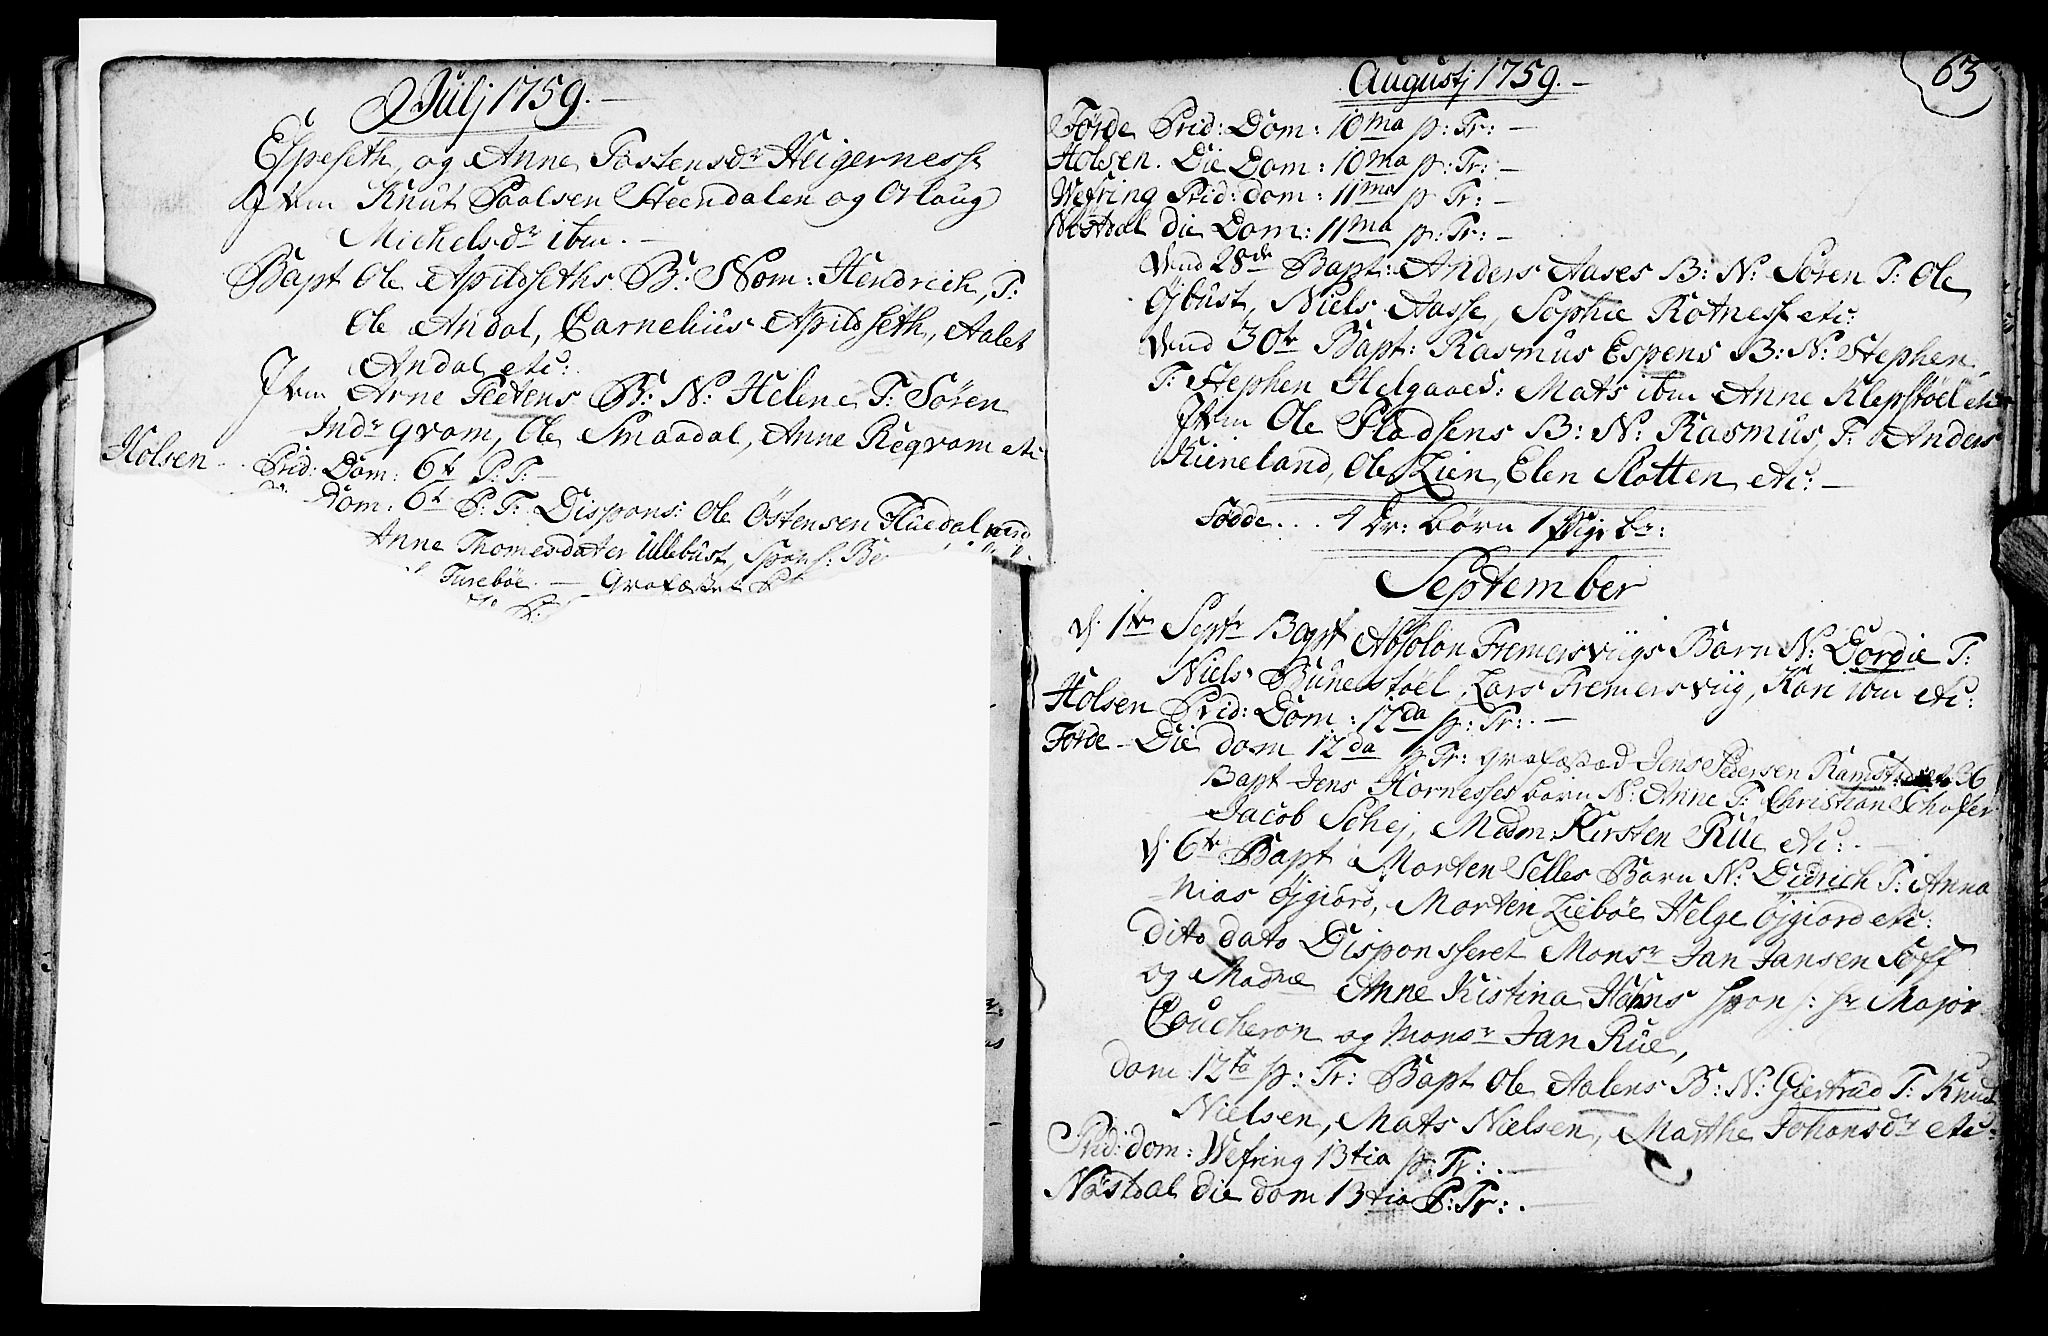 Julj 1759. —
Espeseth, og Anne Tostensdr Heigernesse
Item Knut Paalsen Steendalen og Orlaug
Michelsdr ibm. —
Bapt Ole Apildseths B: Nom: Hendrich, T:
Ole Andal, Carnelius Apildseth, Aalet
Andal etc:
Item Arne Teetens B: N: Helene T: Sören
Indr qvam, Ole Smaadal, Anne Reqvam etc
Holsen — Prid: Dom: 6te P: T: —
Dom: 6te P: T: Dispons: Ole Östensen Huedal
Anne Thomesdater Ullebust, Spons:
Turebøe. —
Augustj 1759. —
63
Förde Prid: Dom: 10ma p: Tr: —
Holsen. Die Dom: 10ma p: Tr: —
Wefring Prid: dom: 11ma p Tr: —
Nöstdal die Dom: 11ma p: Tr: —
28de Bapt: Anders Aases B: N: Sören T: Ole
Ojbust, Niels Aasse, Sophie Rotness etc:
30te Bapt: Rasmus Espens B: N: Stephen
T: Stephen Helgaaes: Mats ibm Anne Klepstöel etc
Item Ole Fladsens B: N: Rasmus, T: Anders
Kieneland, Ole Lien, Elen Slotten etc: —
Födde... 4 Dr: börn 1 Pige b:
September
d. 1te Septr Bapt Absolon Fremersviigs Barn N: Dordie T:
Niels Bunestöel, Lars Fremersviig, Kari ibm etc:
Holsen Prid: Dom: 12da p: Tr: —
Förde — Die dom 12da p Tr: grafæstæd Jens Pedersen 36
Bapt Jens Hornesses barn N: Anne T: Christian
Jacob Schej, Madm: Kirsten Rüe etc: . —
d. 6te Bapt Morten Selles Barn N: Didrich T: Anna
nias Öjgiord, Morten Liebøe Helge Öjgiord etc:
dito dato Disponsseret Monsr Jan Jansen
og Madme Anne Kistina Hams spons: Hr Major
Coucheron og Monsr Jan Rüe,
dom 12ta p: Tr: Bapt Ole Aalens B: N: Giertrud T: Knud
Nielsen, Mats Nielsen, Marthe Johansdr etc:
Prid: dom: Wefring 13tia p: Tr: . —
Nöstdal die dom 13tia P: Tr: . —